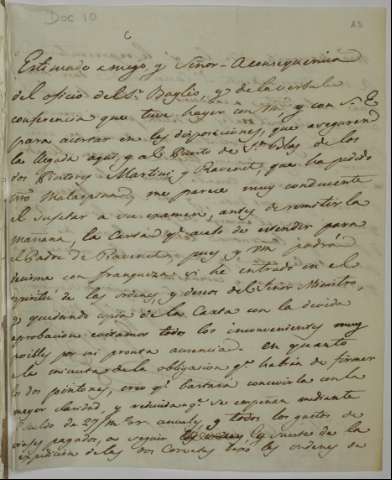 Doc 10
6
Estimado amigo y Señor. A consequencia
del oficio del Sr. Baglio, y de la verbal
conferencia que tuve hayer con Vm. y con S. E.
para acertar en las disposiciones, que aseguren
la llegada aquí, y al Puerto de Sn. Blas de los
dos Pintores Martini y Ravenet, que ha pedido
Dn. Malaspina, me parece muy conducente
el sujetar a su examen, antes de remitir la
mañana, la Carta qe. acabo de extender para
el Padre de Ravenet, pues Vm. podrá
decirme con franqueza si he entrado en el
espíritu de las ordenes, y deseos del Señor Ministro,
y quedando de la Carta con la devida
aprobacion evitamos todos los inconvenientes muy
por mi pronta ausencia. En quanto
a la minuta de la obligacion qe. habrán de firmar
los dos pintores, creo qe. bastará concevirla con la
mayor claridad y qe. se empeñan mediante
sueldo de anuales, y todos los gastos de
viajes pagados, a seguir la suerte de la
expedicion de las dos Corvetas bajo las ordenes de